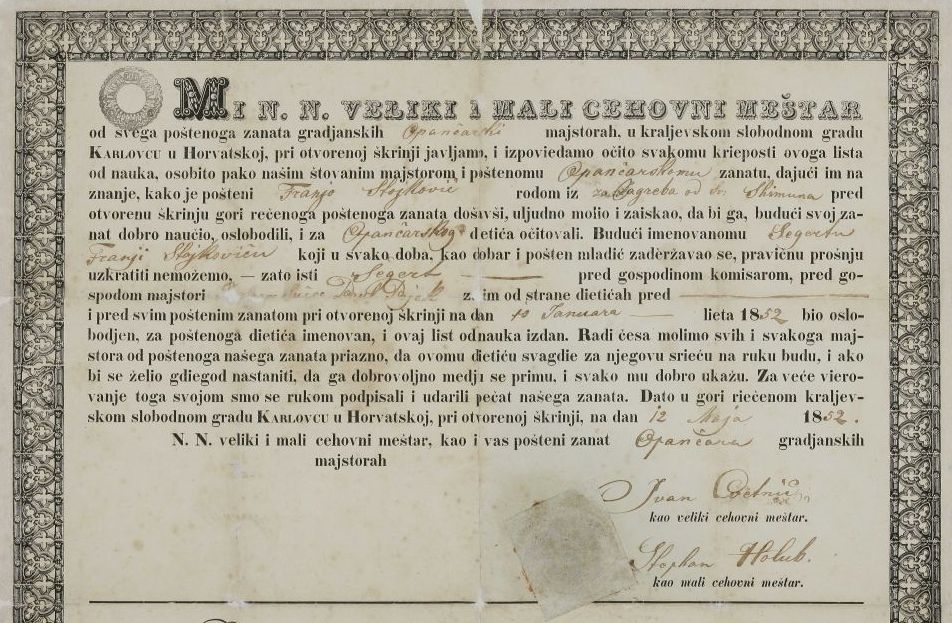 MI N. N. VELIKI I MALI CEHOVNI MEŠTAR
od svega poštenoga zanata gradjanskih Opančarski majstorah, u kraljevskom slobodnom gradu
KARLOVCU u Horvatskoj, pri otvorenoj škrinji javljamo, i izpoviedamo očito svakomu krieposti ovoga lista
od nauka, osobito pako našim štovanim majstorom i poštenomu Opančarskomu zanatu, dajući im na
znanje, kako je pošteni Franjo Stojković rodom iz za Zagreba od Sv. Shimuna pred
otvorenu škrinju gori rečenoga poštenoga zanata došavši, uljudno molio i zaiskao, da bi ga, budući svoj za-
nat dobro naučio, oslobodili, i za Opančarskog detića očitovali. Budući imenovanomu Segertu
Franji Stojkoviću koji u svako doba, kao dobar i pošten mladić zaderžavao se, pravičnu prošnju
uzkratiti nemožemo, — zato isti Segert — pred gospodinom komisarom, pred go-
spodom majstori zatim od strane dietićah pred —
i pred svim poštenim zanatom pri otvorenoj škrinji na dan 10 Januara — lieta 1852 bio oslo-
bodjen, za poštenoga dietića imenovan, i ovaj list odnauka izdan. Radi česa molimo svih i svakoga maj-
stora od poštenoga našega zanata priazno, da ovomu dietiću svagdie za njegovu srieću na ruku budu, i ako
bi se želio gdiegod nastaniti, da ga dobrovoljno medju se primu, i svako mu dobro ukažu. Za veće viero-
vanje toga svojom smo se rukom podpisali i udarili pečat našega zanata. Dato u gori riečenom kraljev-
skom slobodnom gradu KARLOVCU u Horvatskoj, pri otvorenoj škrinji, na dan 12 Maja 1852.
N. N. veliki i mali cehovni meštar, kao i vas pošteni zanat Opančara gradjanskih
majstorah
Ivan
kao veliki cehovni meštar.
Stephan Holub.
kao mali cehovni meštar.